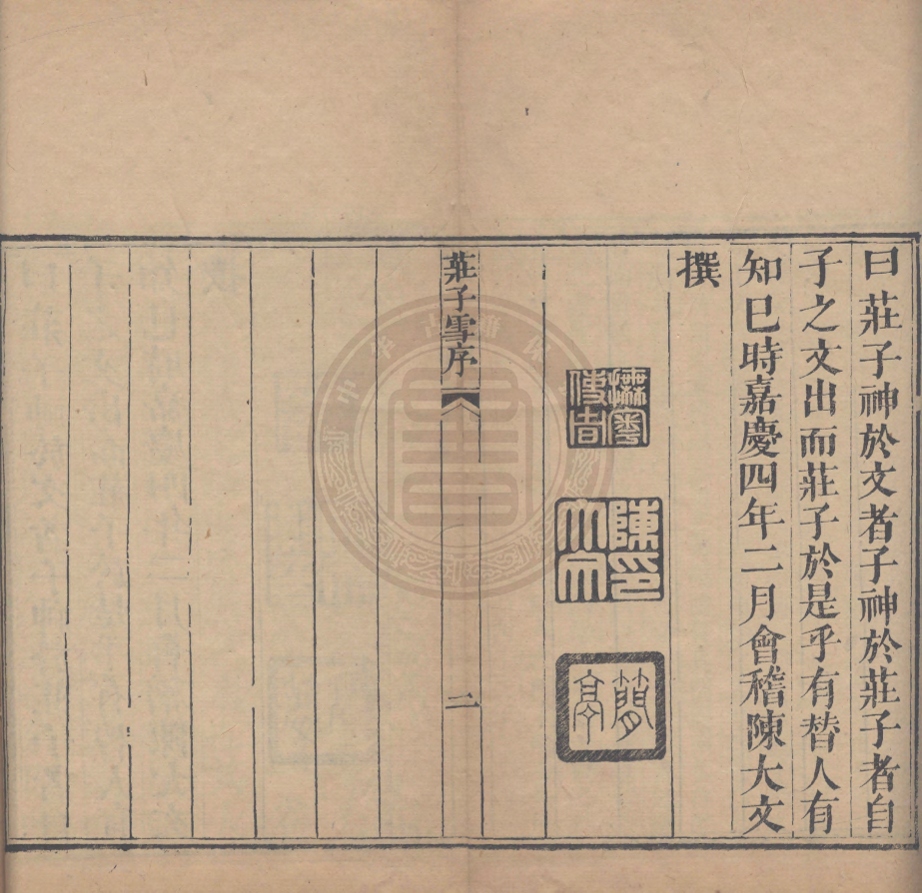 曰莊子神於文者子神於莊子者自
子之文出而莊子於是乎有替人有
知巳時嘉慶四年二月會稽陳大文
撰
陳印
大文
簡亭
莊子雪序
二